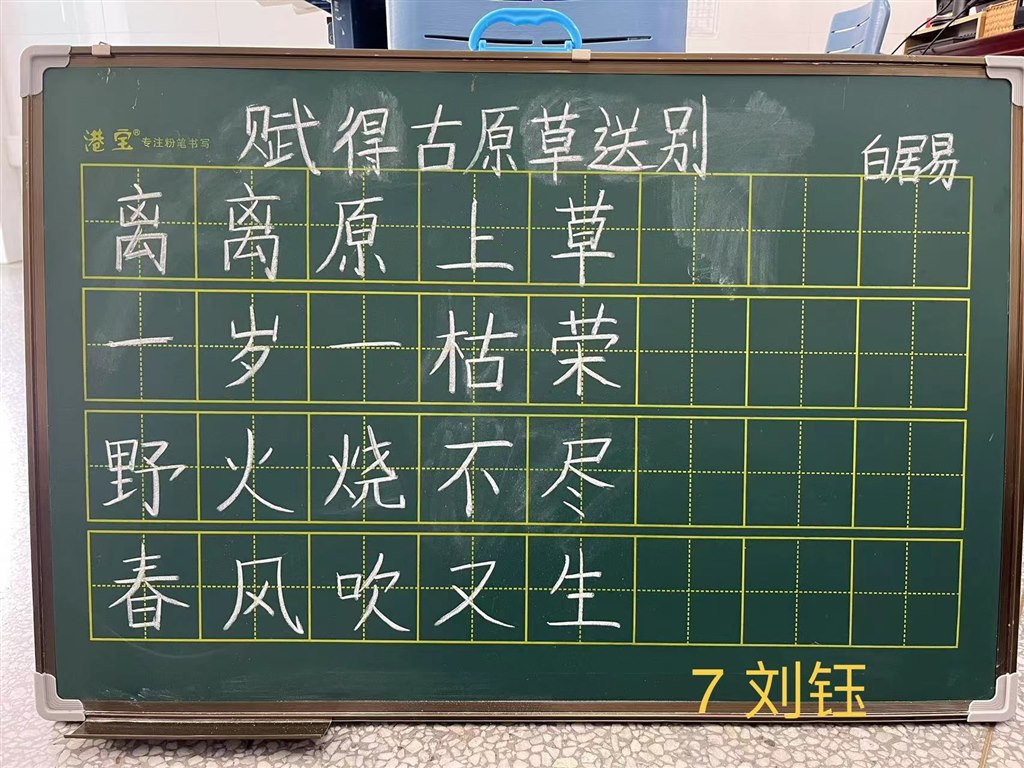 港宝® 专注粉笔书写
赋得古原草送别
白居易
离离原上草
一岁一枯荣
野火烧不尽
春风吹又生
7 刘钰